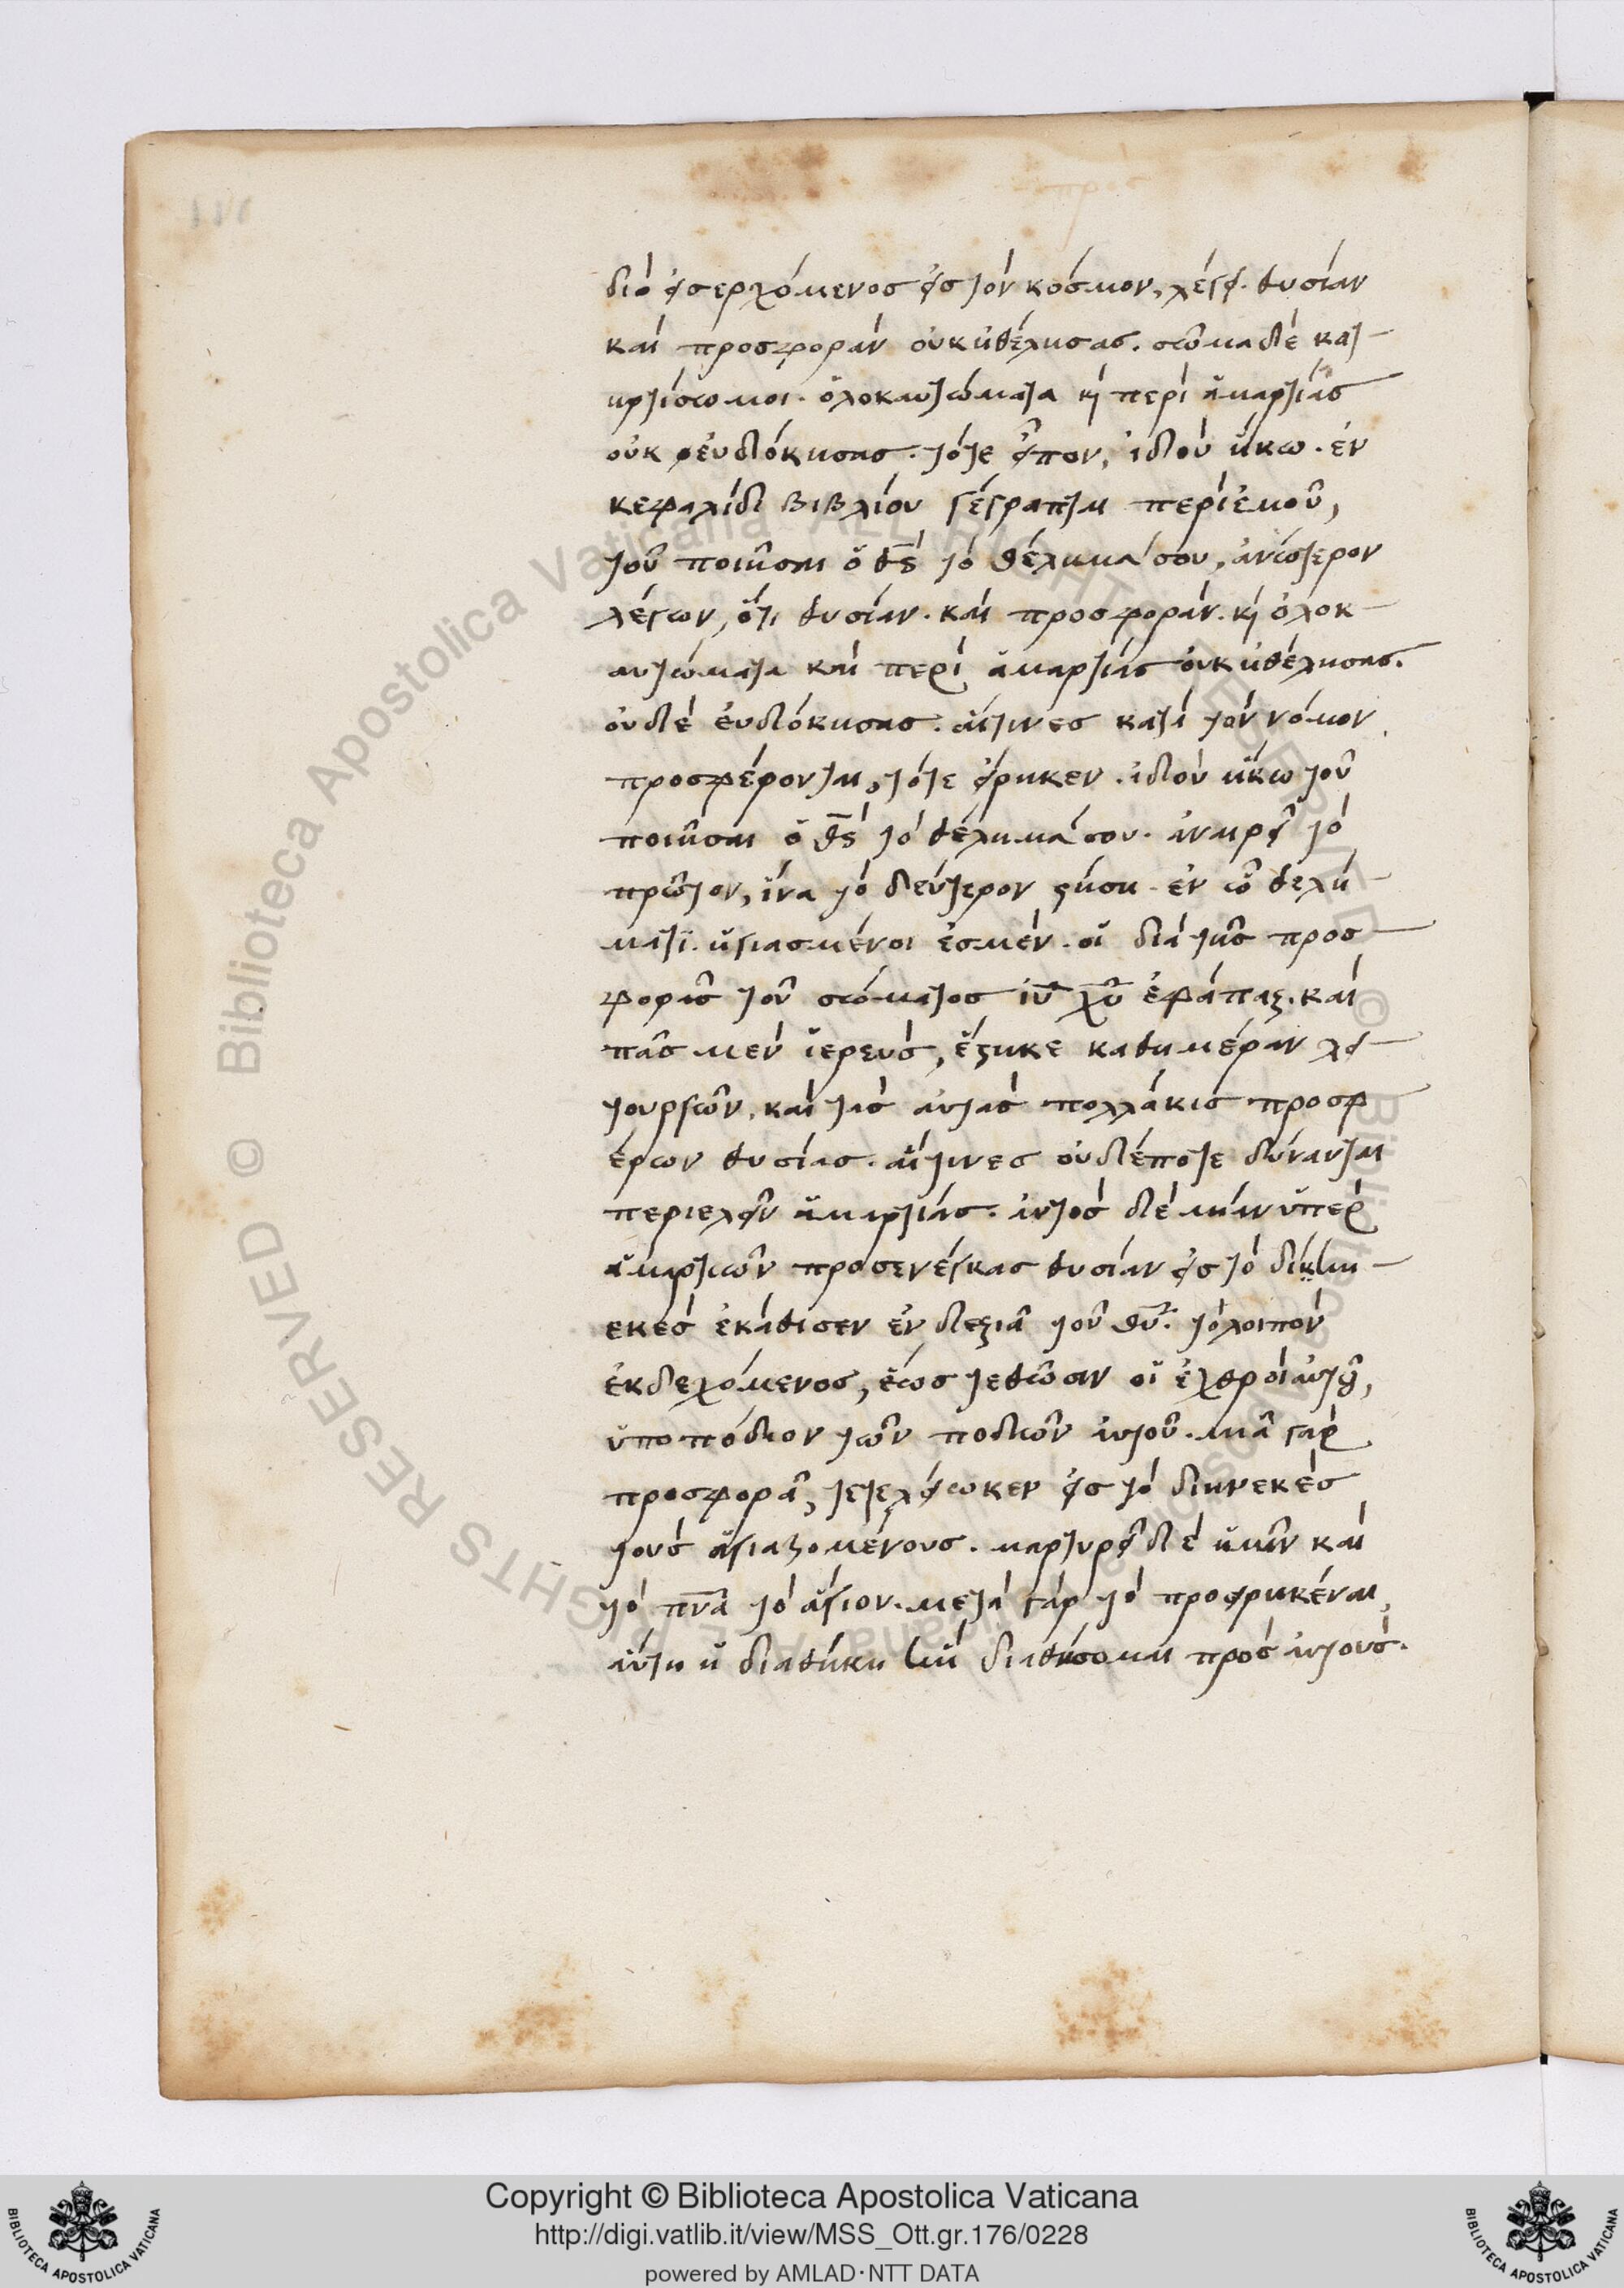 διὸ εἰσερχόμενος εἰς τὸν κόσμον, λέγει. θυσίαν
καὶ προσφορὰν οὐκ ἠθέλησας. σῶμα δὲ κατ
ηρτίσω μοι. ὁλοκαυτώματα κὶ περὶ ἁμαρτίας
οὐκ εὐδόκησας. τότε εἶπον, ἰδοὺ ἥκω. ἐν
κεφαλίδι βιβλίου γέγραπται περὶ ἐμοῦ,
τοῦ ποιῆσαι ὁ θς τὸ θέλημά σου, ἀνώτερον
λέγων, ὅτι θυσίαν. καὶ προσφοράν. κὶ ὁλοκ
αυτώματα καὶ περὶ ἁμαρτίας οὐκ ἠθέλησας.
οὐδὲ εὐδόκησας. αἵτινες κατὰ τὸν νόμον
προσφέρονται, τότε εἴρηκεν. ἰδοὺ ἥκω τοῦ
ποιῆσαι ὁ θς τὸ θέλημά σου. ἀναιρεῖ τὸ
πρῶτον, ἵνα τὸ δεύτερον στήση. ἐν ᾧ θελή
ματι. ἡγιασμένοι ἐσμέν. οἱ διὰ τῆς προσ
φορᾶς τοῦ σώματος ιυ χυ ἐφάπαξ. καὶ
πᾶς μὲν ἱερεύς, ἕστηκε καθημέραν λει
τουργῶν, καὶ τὰς αὐτὰς πολλάκις προσφ
έρων θυσίας. αἵτινες οὐδέποτε δύνανται
περιελεῖν ἁμαρτίας. αὐτὸς δὲ μίαν ὑπὲρ
ἁμαρτιῶν προσενέγκας θυσίαν εἰς τὸ διην
εκὲς ἐκάθισεν ἐν δεξιᾷ τοῦ θυ. τὸ λοιπὸν
ἐκδεχόμενος, ἕως τεθῶσιν οἱ ἐχθροὶ αὐτοῦ,
ὑποπόδιον τῶν ποδῶν αὐτοῦ. μιᾷ γὰρ
προσφορᾷ, τετελείωκεν εἰς τὸ διηνεκὲς
τοὺς ἁγιαζομένους. μαρτυρεῖ δὲ ἡμῖν καὶ
τὸ πνα τὸ ἅγιον. μετὰ γὰρ τὸ προειρηκέναι,
αὕτη ἡ διαθήκη ἣν διαθήσομαι πρὸς αὐτούς.
Copyright © Biblioteca Apostolica Vaticana
http://digi.vatlib.it/view/MSS_Ott.gr.176/0228
powered by AMLAD·NTT DATA